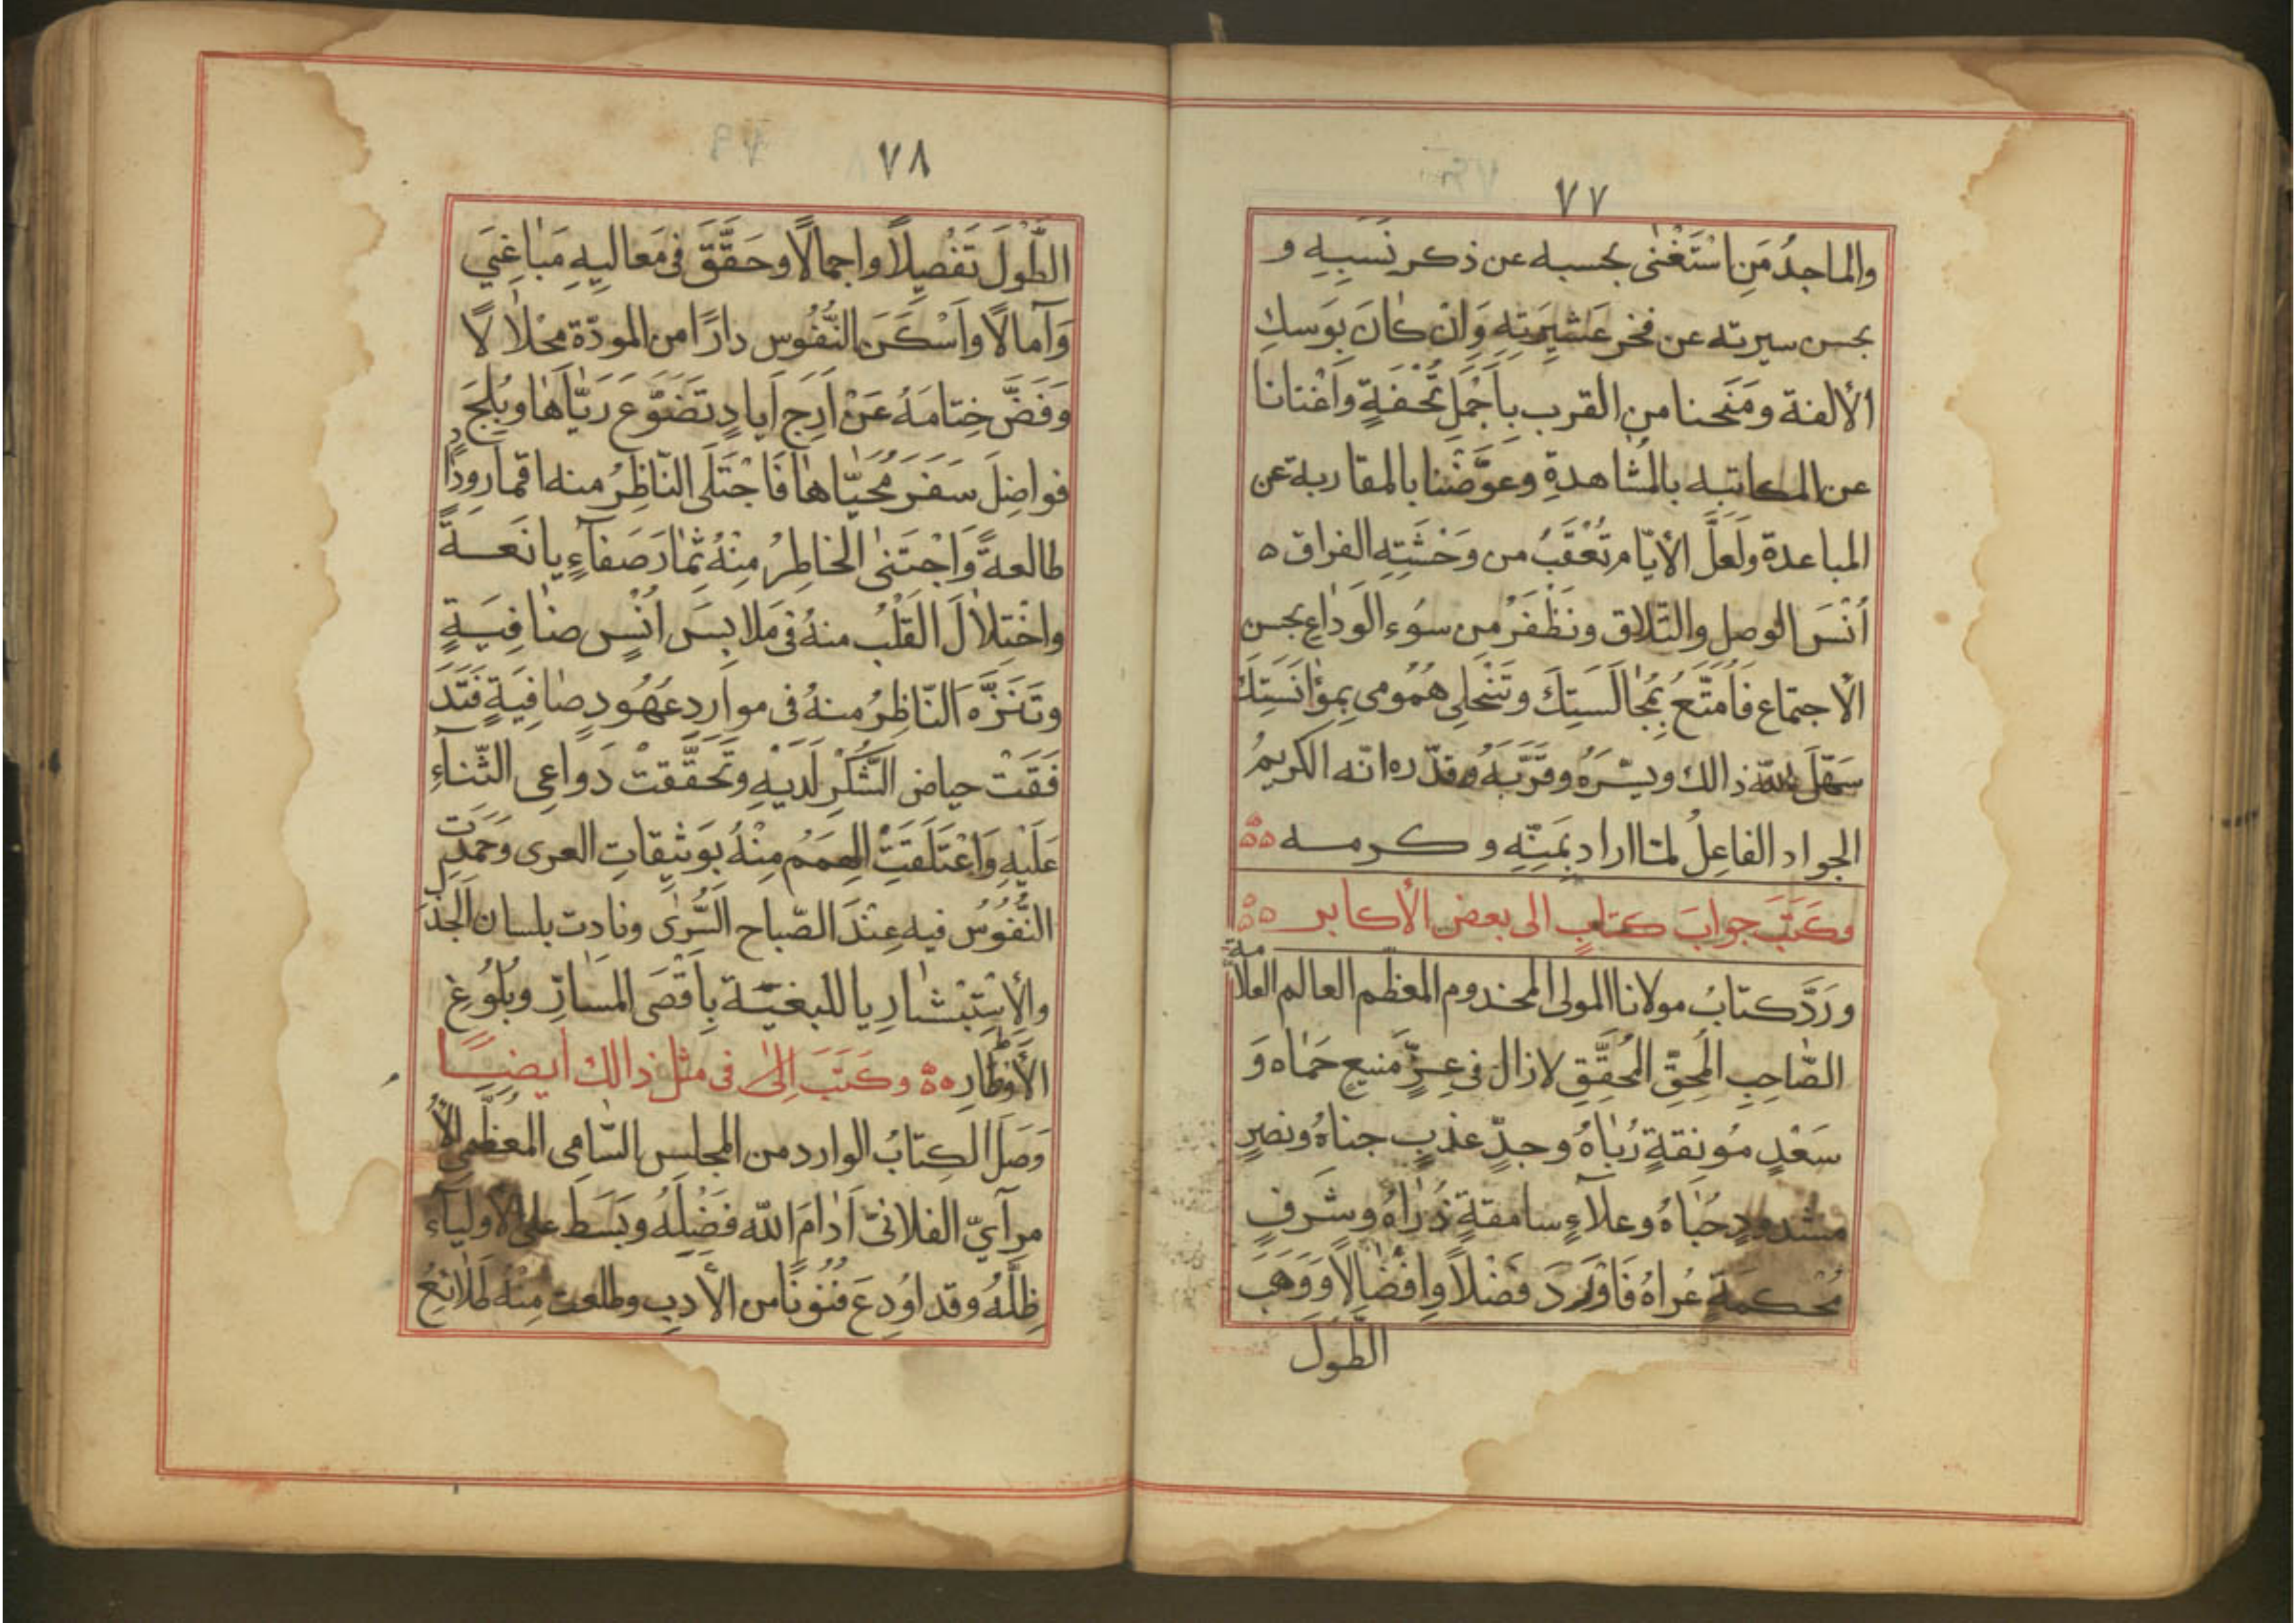 ٧٧
والماجدُ مَنِ اسْتَغْنٰى بحسبه عن ذكر نَسَبِهِ و
بحسن سيرته عن فخر عَشيرَتِهِ وَانْ كانَ بَوسكِ
الألفة ومَنَحنا من القرب بِاَجْمَلِ تُحْفَةٍ وَاَغْنانا
عن المكاتبه بالمُشاهدةِ وعَوَّضَنا بالمقاربة عن
المباعدة ولَعَلَّ الأيّام تُعْقَبُ من وَحْشَتِهِ الفراق ه
اُنْسَ الوصل والتّلاق ونَظْفَرُ مِن سوُء الوَداعِ بحسن
الاجتماع فَاَمَتَّعُ بِمُجالَسَتِكَ وتَنْجَلِى هُمُومى بِمؤانَسَتِكَ
سَهّلَ اللّه ذالك ويسّرَهُ وقَرَّبَهُ وقدّره انّه الكريمُ
الجواد الفاعِلُ لماارا د بِمَنِّهِ و كرمه
وكَتَبَ جوابَ كتابٍ الى بعض الأكابر
ورَدَّ كتابُ مولانا المولى المخدوم المعظّم العالم العلاّمة
الصّاحِبِ المُحِقّ المُحَقِّقِ لازال فى عِزٍّ مَنيع حَماه وَ
سَعْدٍ مُونقةٍ رُباهُ وجدٍّ عذبٍ جناهُ ونصرٍ
مشدودٍ حُباهُ وعلآءٍ سامقةٍ ذُراهُ وشَرفٍ
مُحْكمَةٍ عُراهُ فَاَوْرَدَ فضْلاً وافْضالاً وَوَهَبَ
الطَّولَ
٧٨
الطَّوْلَ تَفْصِيلاً واجمالاً وحَقَّقَ فى مَعاليهِ مَباغِىَ
وَآمالاً واَسْكَنَ النُّفُوس دارًا من المودّة مِحْلالاً
وَفَضَّ خِتامَهُ عَنْ اَرِج اَيادٍ تَضَوَّعَ رَيّاها وبُلِجَ
فواضِلَ سَفَرَ مُحَيّاها فَاجْتَلَى النّاظِرُ منه اقمار وِدٍّ
طالعةً وَاجْتَنٰى الخاطِرُ مِنْهُ ثِمارَ صَفآءٍ يانَعَةً
واخْتِلالَ القَلْبُ منهُ فى مَلابِسَ اُنْسٍ ضافِيَةٍ
وتَنَزَّهَ النّاظِرُ منهُ فى موارِدِ عُهُودٍ صافِيَةٍ فَتَدَ
فَقَتْ حياض الشُّكْرِ لَدَيْهِ وتَحَقَّقتْ دَواعِى الثّناءِ
عَلَيْهِ وَاعْتَلَقَتِ الهِمَمُ مِنْهُ بوَثيقاتِ العرى وَحَمَدتِ
النُّفُوُسُ فيه عِنْدَ الصّباح السُّرٰى ونادت بلسان الجَذَ
والإسْتِبْشارِ يا للبغيَة بِاَقْصَى المَسارِّ وبُلُوُغ
الأوْطارِ وكَتَبَ اِلىٰ فى مثل ذالك ايضًا
وَصَلَ الكِتابُ الوارد من المجلس السّامى المعَظّمىِّ الأَ
مِرآىِّ الفلانىّ اَدامَ اللّه فَضْلَهُ وبَسَطَ على الأوليآء
ظِلَّهُ وقد اوُدِعَ فُنُونًا من الأدبِ وطلعت مِنْهُ طَلائعُ